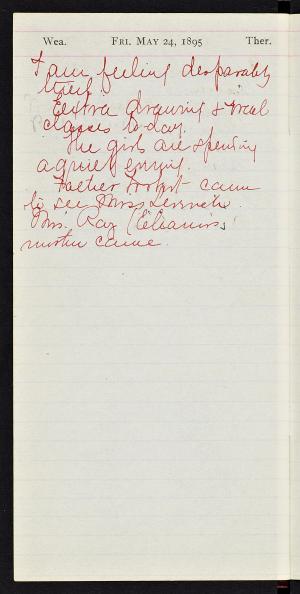 Wea. FRI. MAY 24, 1895 Ther.
I am feeling desparately
tired.
Extra drawing & vocal
classes to-day.
The girls are spending
a quiet evening.
Father came
to see Miss
Mrs. Ray (Eleanor's
mother came.